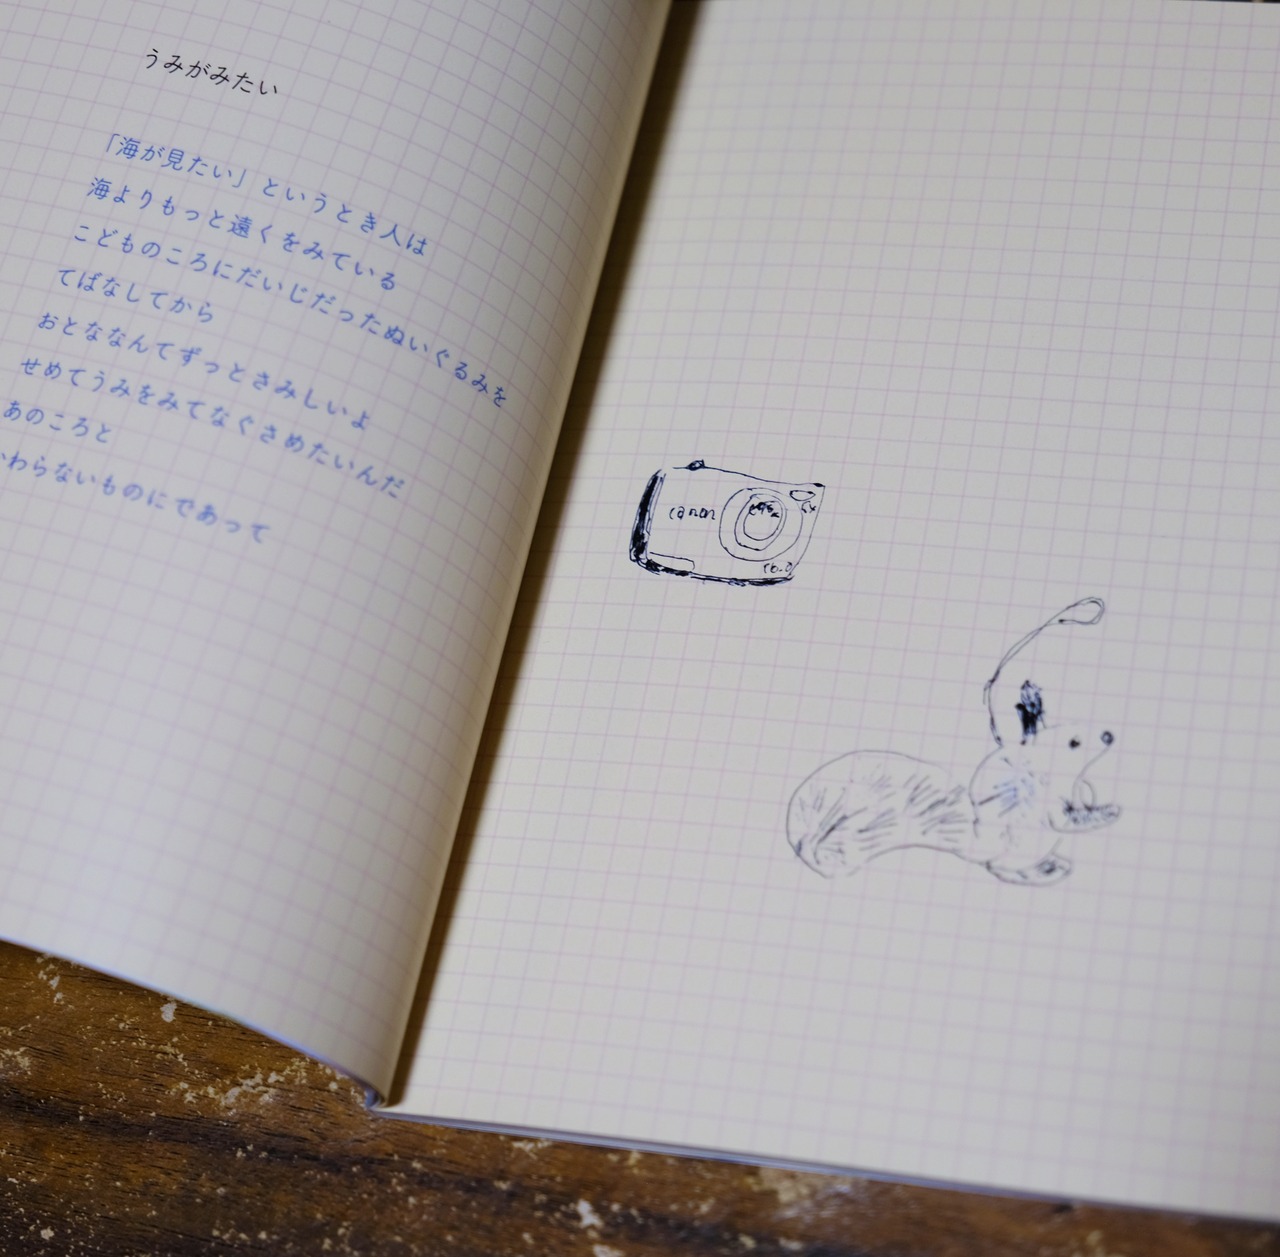 うみがみたい
「海が見たい」というとき人は
海よりもっと遠くをみている
こどものころにだいじだったぬいぐるみを
てばなしてから
おとななんてずっとさみしいよ
せめてうみをみてなぐさめたいんだ
あのころと
わらないものにであって
canon